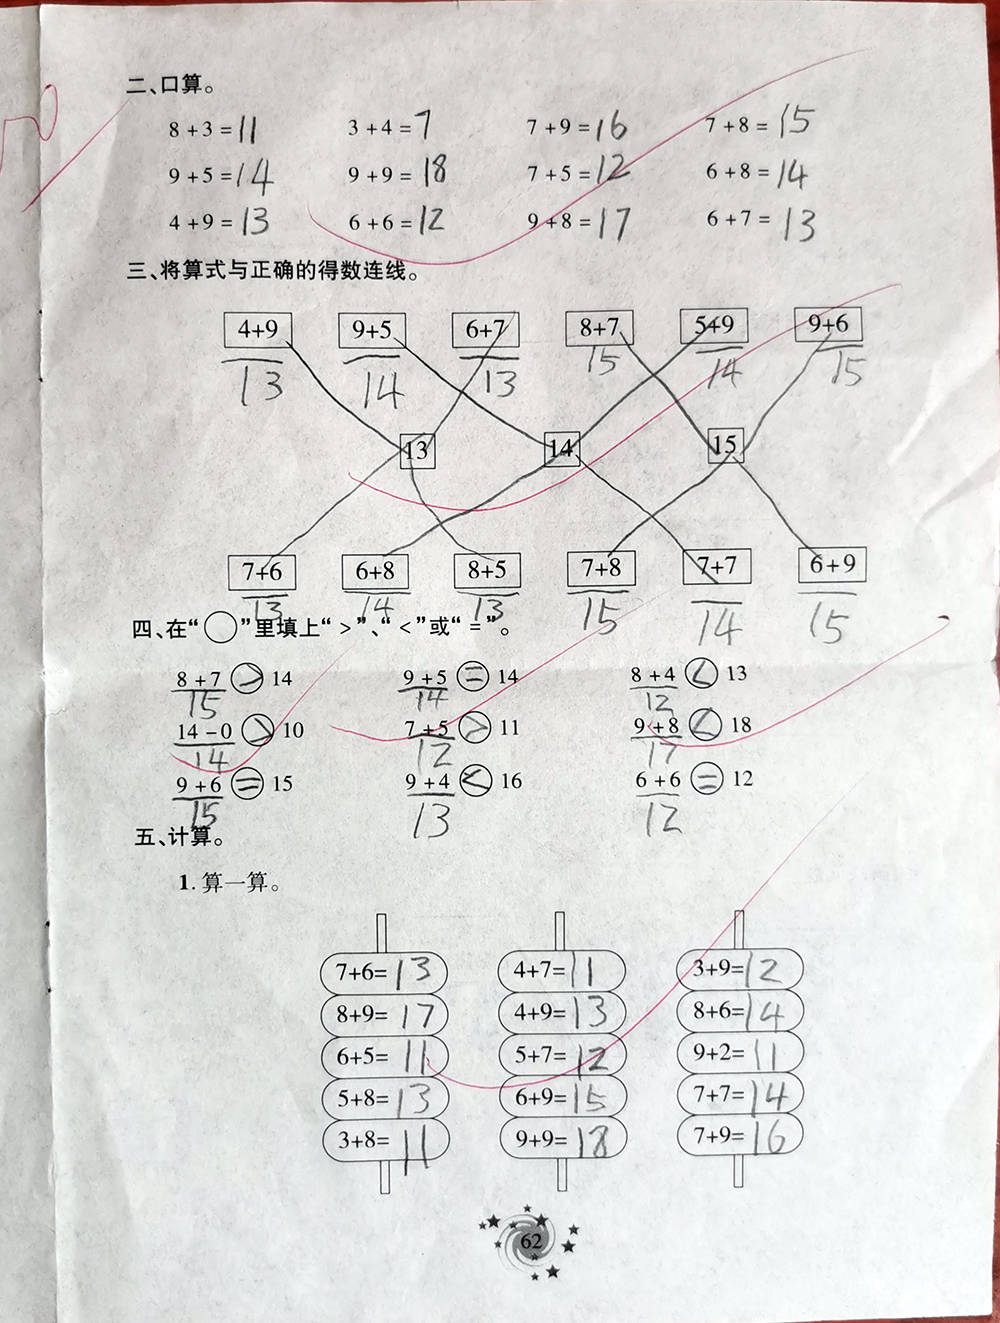 二、口算。
8+3=11 3+4=7 7+9=16 7+8=15
9+5=14 9+9=18 7+5=12 6+8=14
4+9=13 6+6=12 9+8=17 6+7=13
三、将算式与正确的得数连线。
4+9 9+5 6+7 8+7 5+9 9+6
13 14 13 15 14 15
13 14 15
7+6 6+8 8+5 7+8 7+7 6+9
13 14 13 15 14 15
四、在“○”里填上“>”、“<”或“=”。
8+7 > 14 9+5 = 14 8+4 < 13
15 14 12
14-0 > 10 7+5 > 11 9+8 < 18
14 12 17
9+6 = 15 9+4 < 16 6+6 = 12
15 13 12
五、计算。
1. 算一算。
7+6=13 4+7=11 3+9=12
8+9=17 4+9=13 8+6=14
6+5=11 5+7=12 9+2=11
5+8=13 6+9=15 7+7=14
3+8=11 9+9=18 7+9=16
62